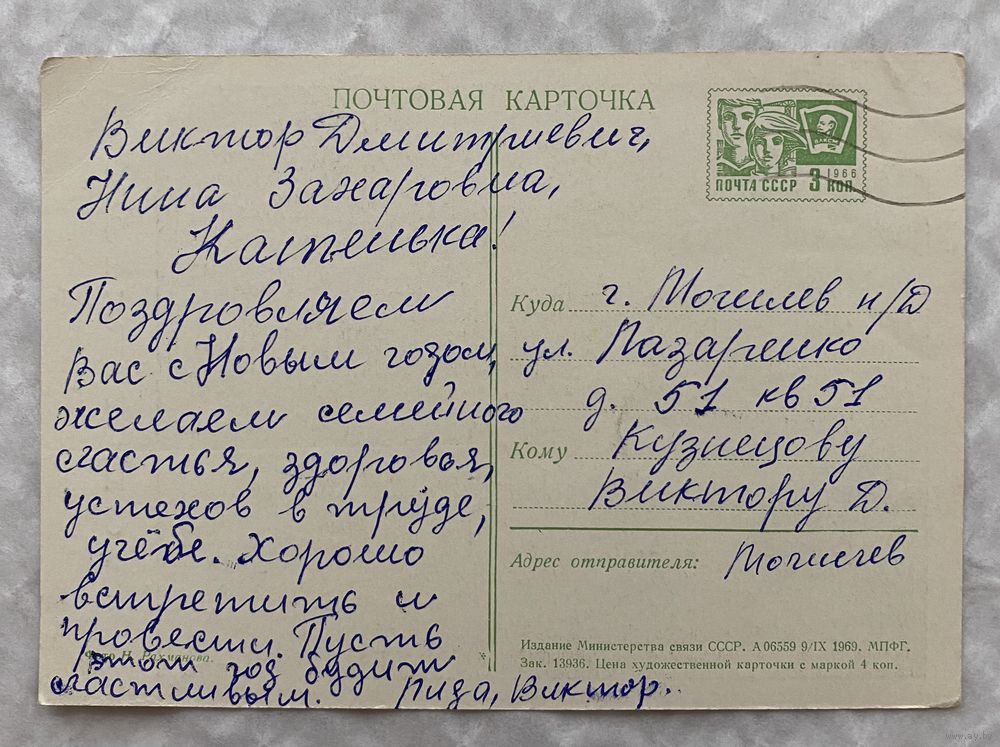 ПОЧТОВАЯ КАРТОЧКА
Виктор Дмитриевич,
Нина Захаровна,
Катенька!
Поздровляем
Вас с Новым годом,
желаем семейного
счастья, здоровья,
успехов в труде,
учёбе. Хорошо
встретить и
провести. Пусть
этот год будит
счастливым. Рида, Виктор.
Фото Н. Рахманова.
ПОЧТА СССР 3 КОП.
1966
Куда г. Могилев н/Д
ул. Лазаренко
д. 51 кв 51
Кому Кузнецову
Виктору Д.
Адрес отправителя: Могилев
Издание Министерства связи СССР. А 06559 9/IX 1969. МПФГ.
Зак. 13936. Цена художественной карточки с маркой 4 коп.
www.ay.by